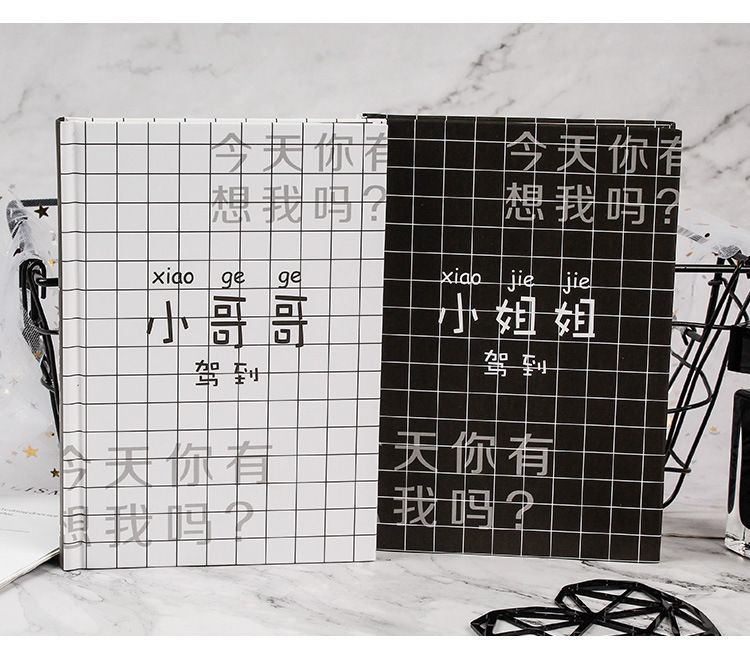 今天你有
想我吗?
xiao ge ge
小哥哥
驾到
今天你有
想我吗?
今天你有
想我吗?
xiao jie jie
小姐姐
驾到
天你有
我吗?